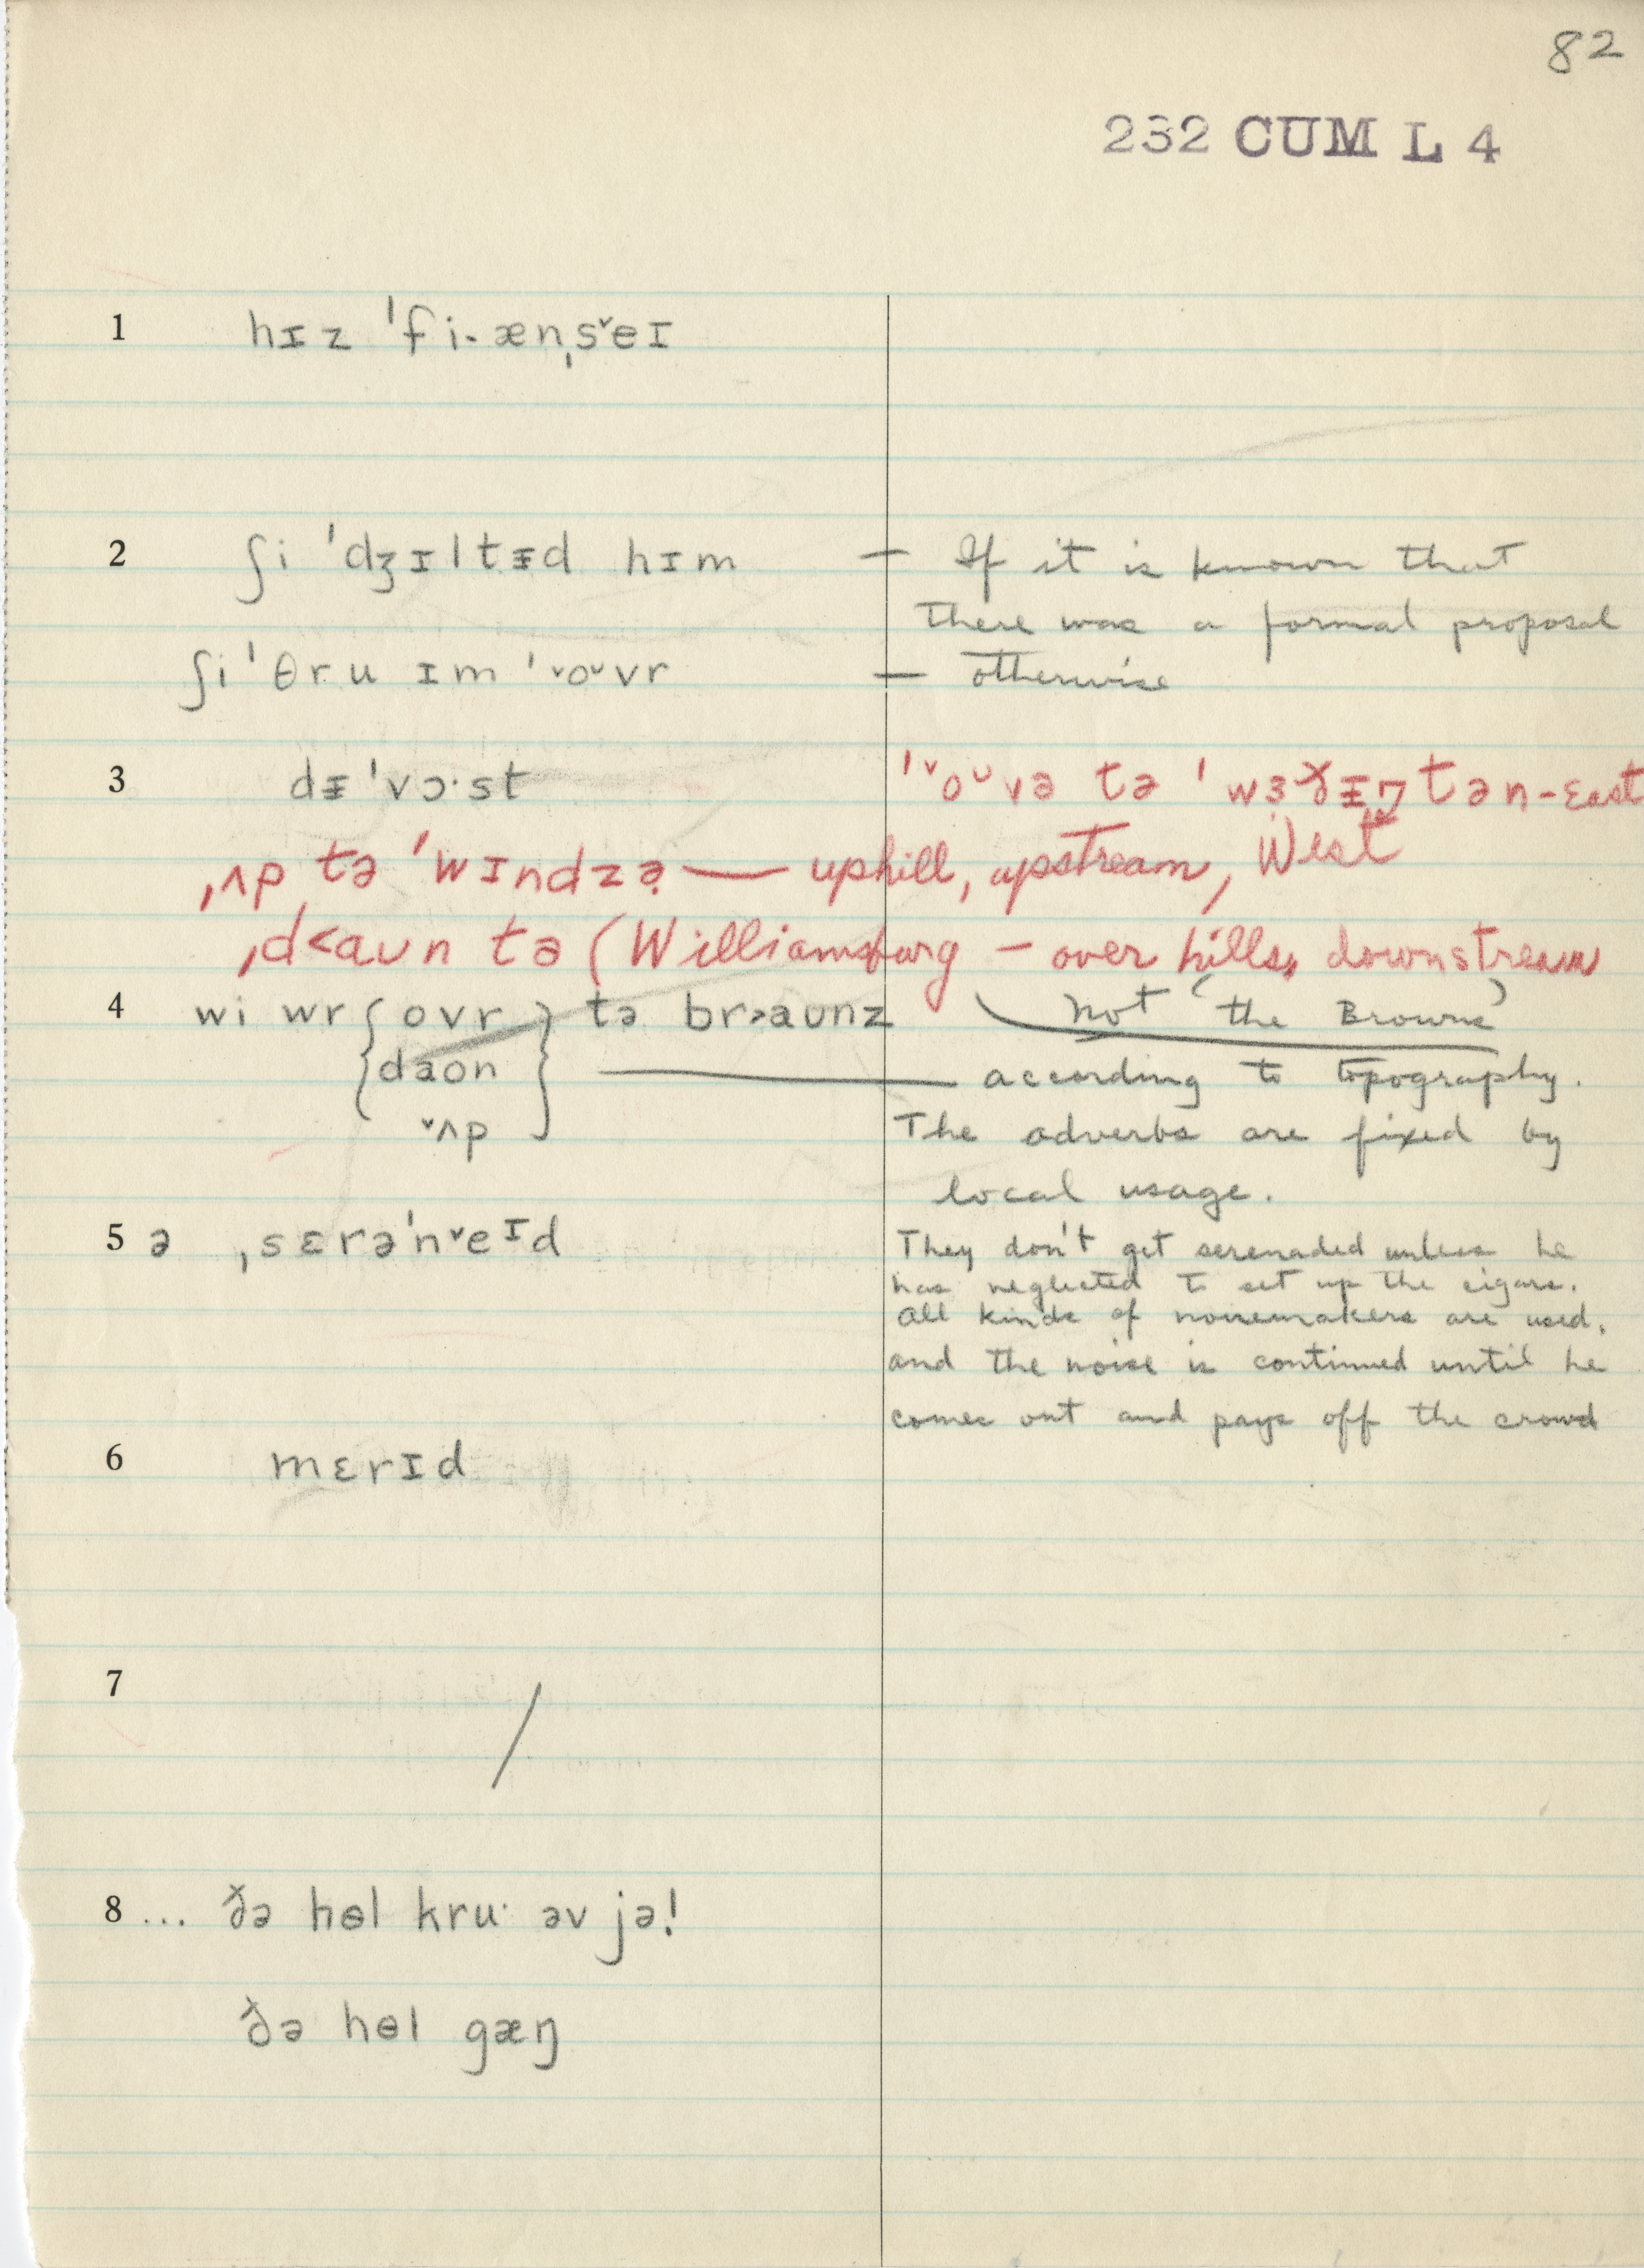 82
232 CUM L 4
1 hɪz ˈfi·ænˌs˅eɪ
2 ʃi ˈdʒɪltᵻd hɪm — If it is known that
there was a formal proposal
ʃi ˈθru ɪm ˈ˅oᵛvr — otherwise
3 dᵻˈvɔ·st ˈ˅oᵛvə tə ˈwɜɤᵻŋtən - East
ˌʌp tə ˈwɪndzə̣ — uphill, upstream, West
ˌd<aʊn tə (Williamsburg — over hills, downstream
4 wi wr { ovr } tə br>aʊnz not 'the Browns'
daʊn — according to topography.
˅ʌp The adverbs are fixed by
local usage.
5 ə ˌsɛrəˈn˅eɪd They don't get serenaded unless he
has neglected to set up the cigars.
All kinds of noisemakers are used,
and the noise is continued until he
comes out and pays off the crowd
6 mɛrɪd
7 /
8 ... ðə hɵl kru· əv jə!
ðə hɵl gæŋ